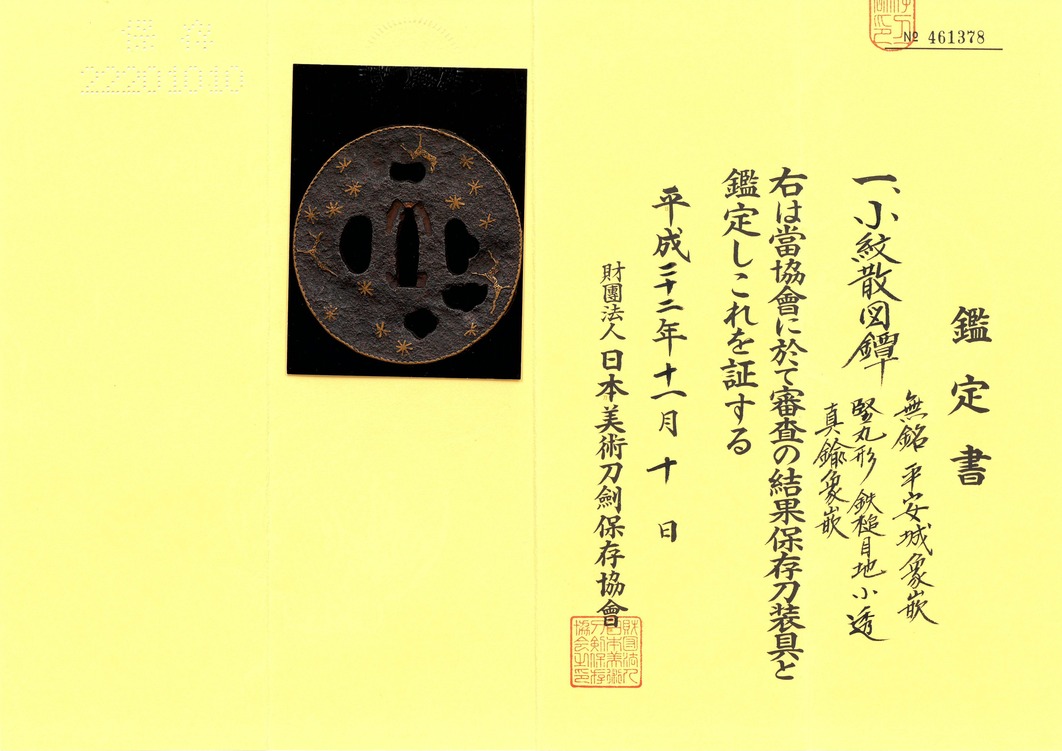 № 461378
鑑定書
一、小紋散図鐔
無銘 平安城象嵌
竪丸形 鉄槌目地 小透
真鍮象嵌
右は當協會に於て審査の結果保存刀装具と
鑑定しこれを証する
平成二十二年十一月十日
財團法人日本美術刀劍保存協會
財団法人
日本美術
刀剣保存
協会之印
保存
22201010